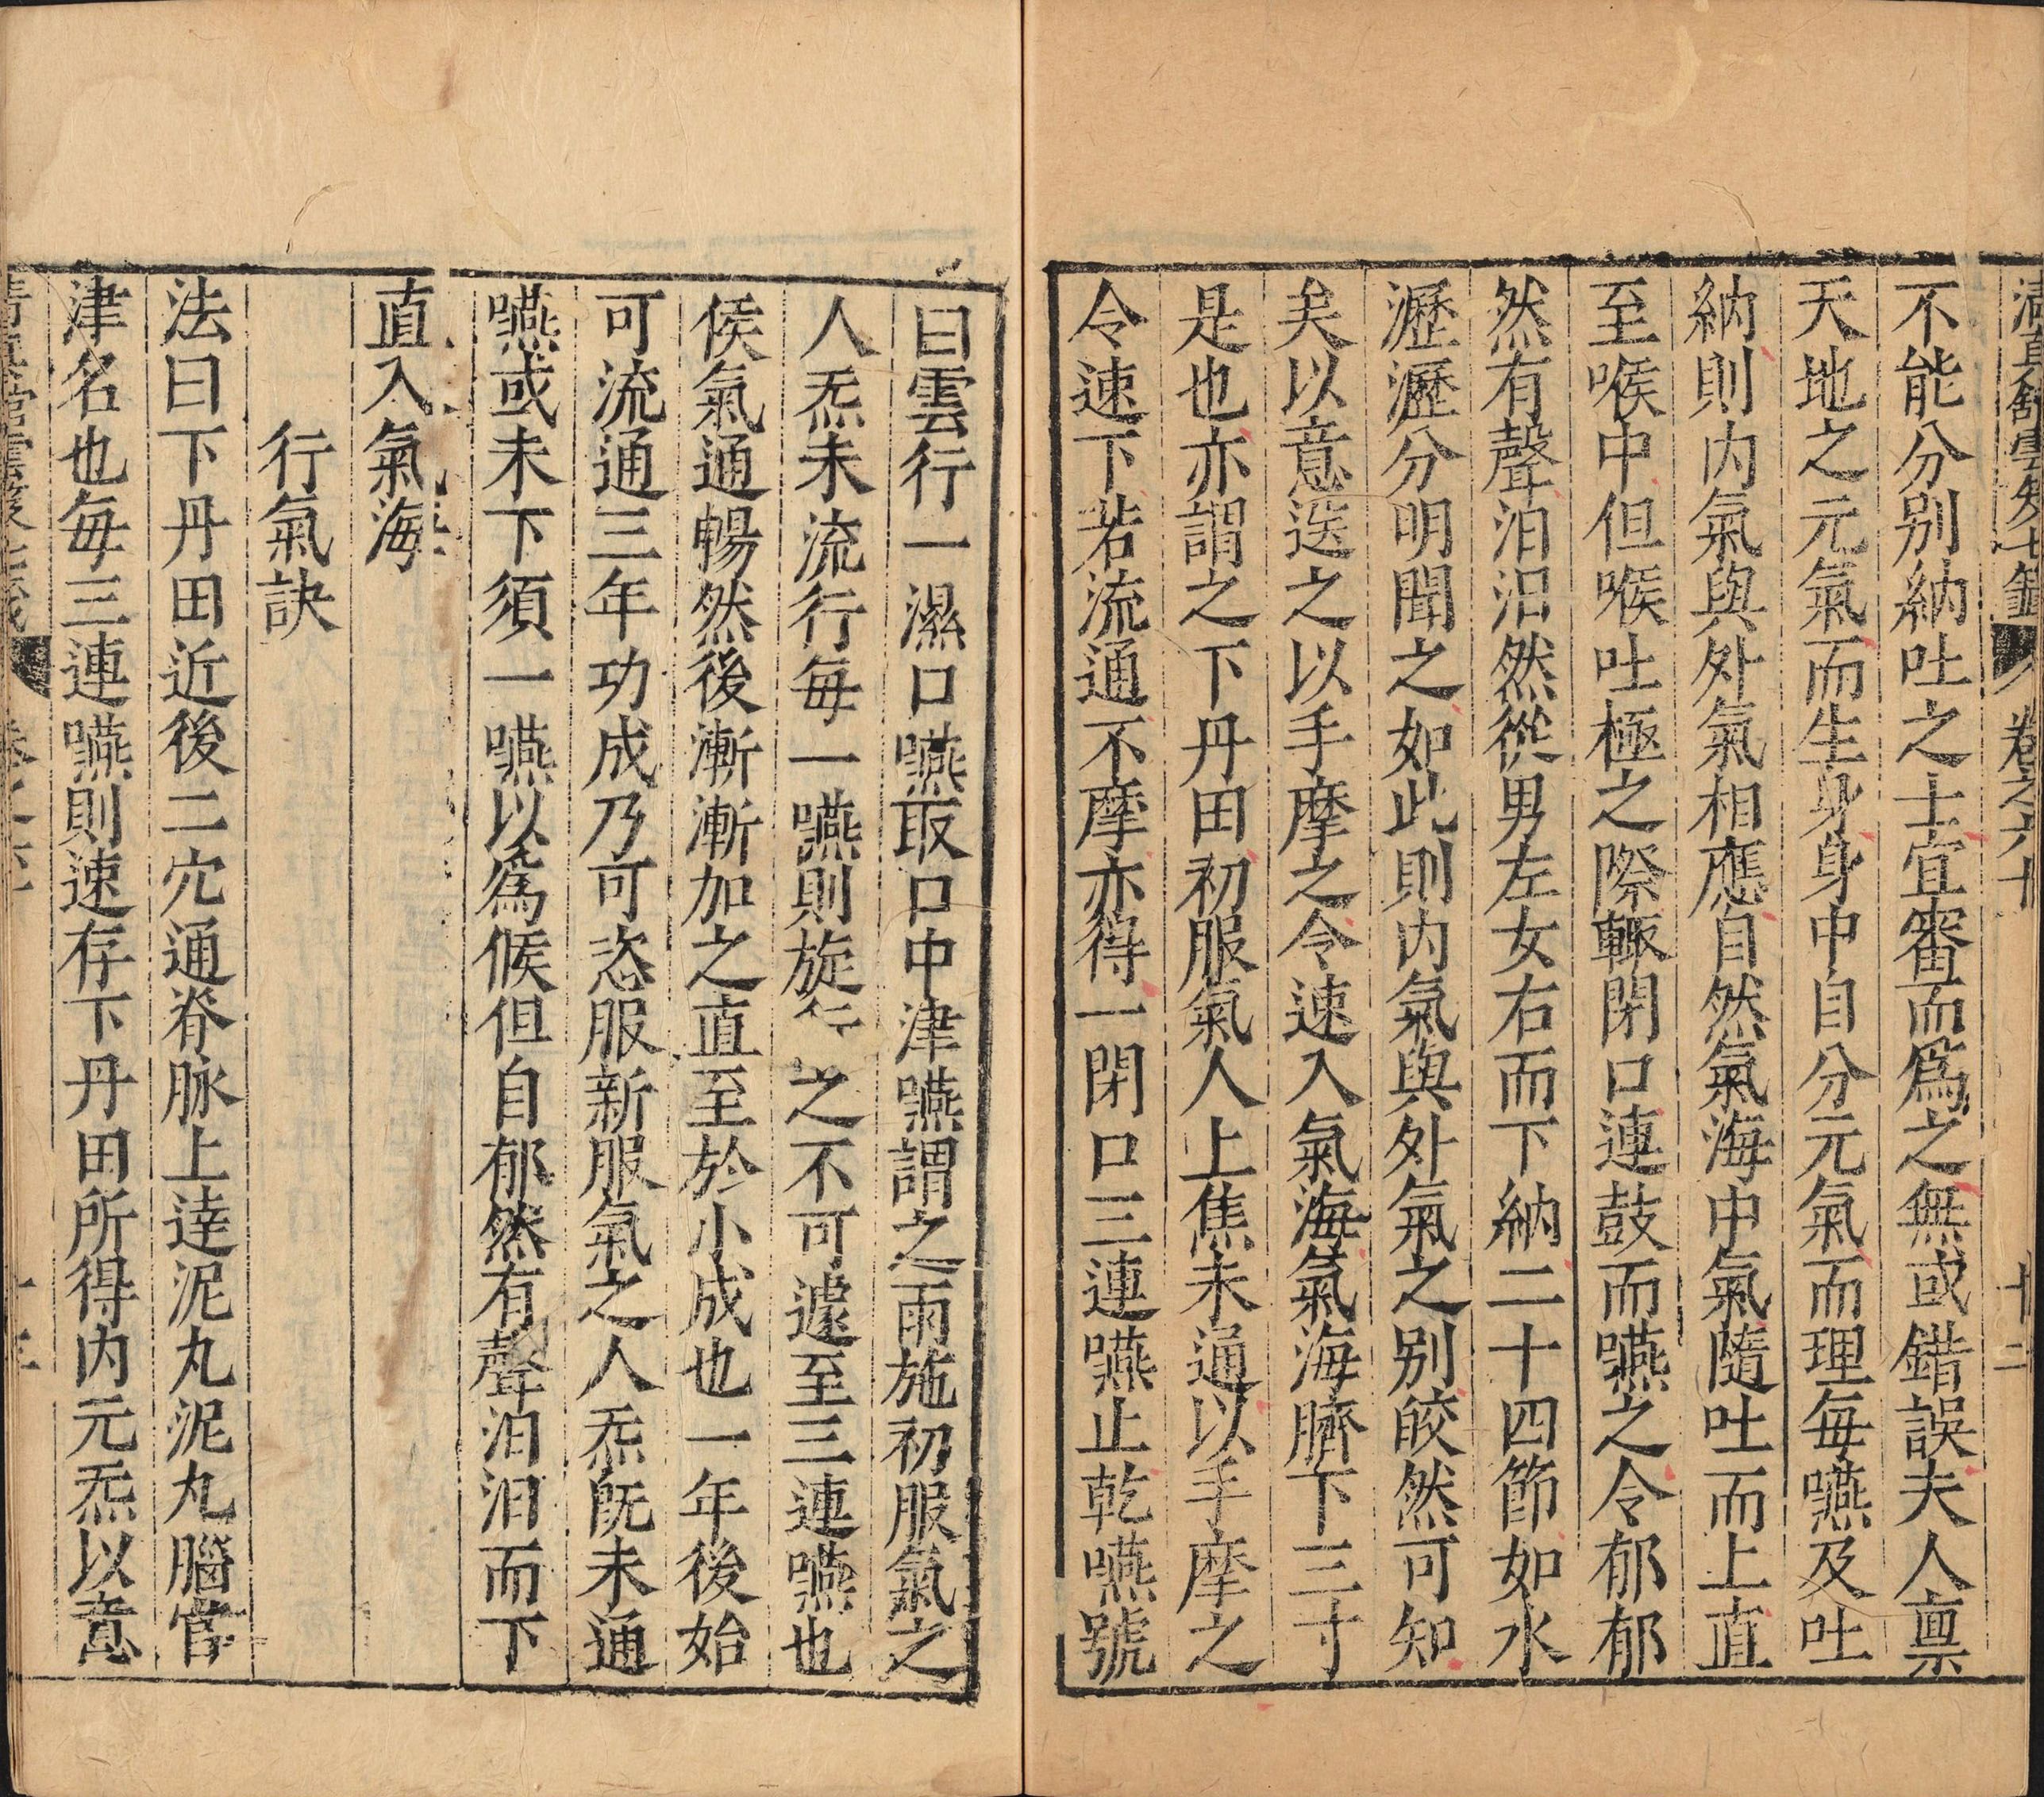 卷之六十 十二
不能分别納吐之士宜審而爲之無或錯誤夫人禀
天地之元氣而生身身中自分元氣而理每嚥及吐
納則内氣與外氣相應自然氣海中氣隨吐而上直
至喉中但喉吐極之際輒閉口連鼓而嚥之令郁郁
然有聲汩汩然從男左女右而下納二十四節如水
瀝瀝分明聞之如此則内氣與外氣之别皎然可知
矣以意送之以手摩之令速入氣海氣海臍下三寸
是也亦謂之下丹田初服氣人上焦未通以手摩之
令速下若流通不摩亦得一閉口三連嚥止乾嚥號
曰雲行一濕口嚥取口中津嚥謂之雨施初服氣之
人炁未流行每一嚥則旋行之不可遽至三連嚥也
候氣通暢然後漸漸加之直至於小成也一年後始
可流通三年功成乃可恣服新服氣之人炁既未通
嚥或未下須一嚥以爲候但自郁然有聲汩汩而下
直入氣海
行氣訣
法曰下丹田近後二穴通脊脉上達泥丸泥丸腦宫
津名也每三連嚥則速存下丹田所得内元炁以意